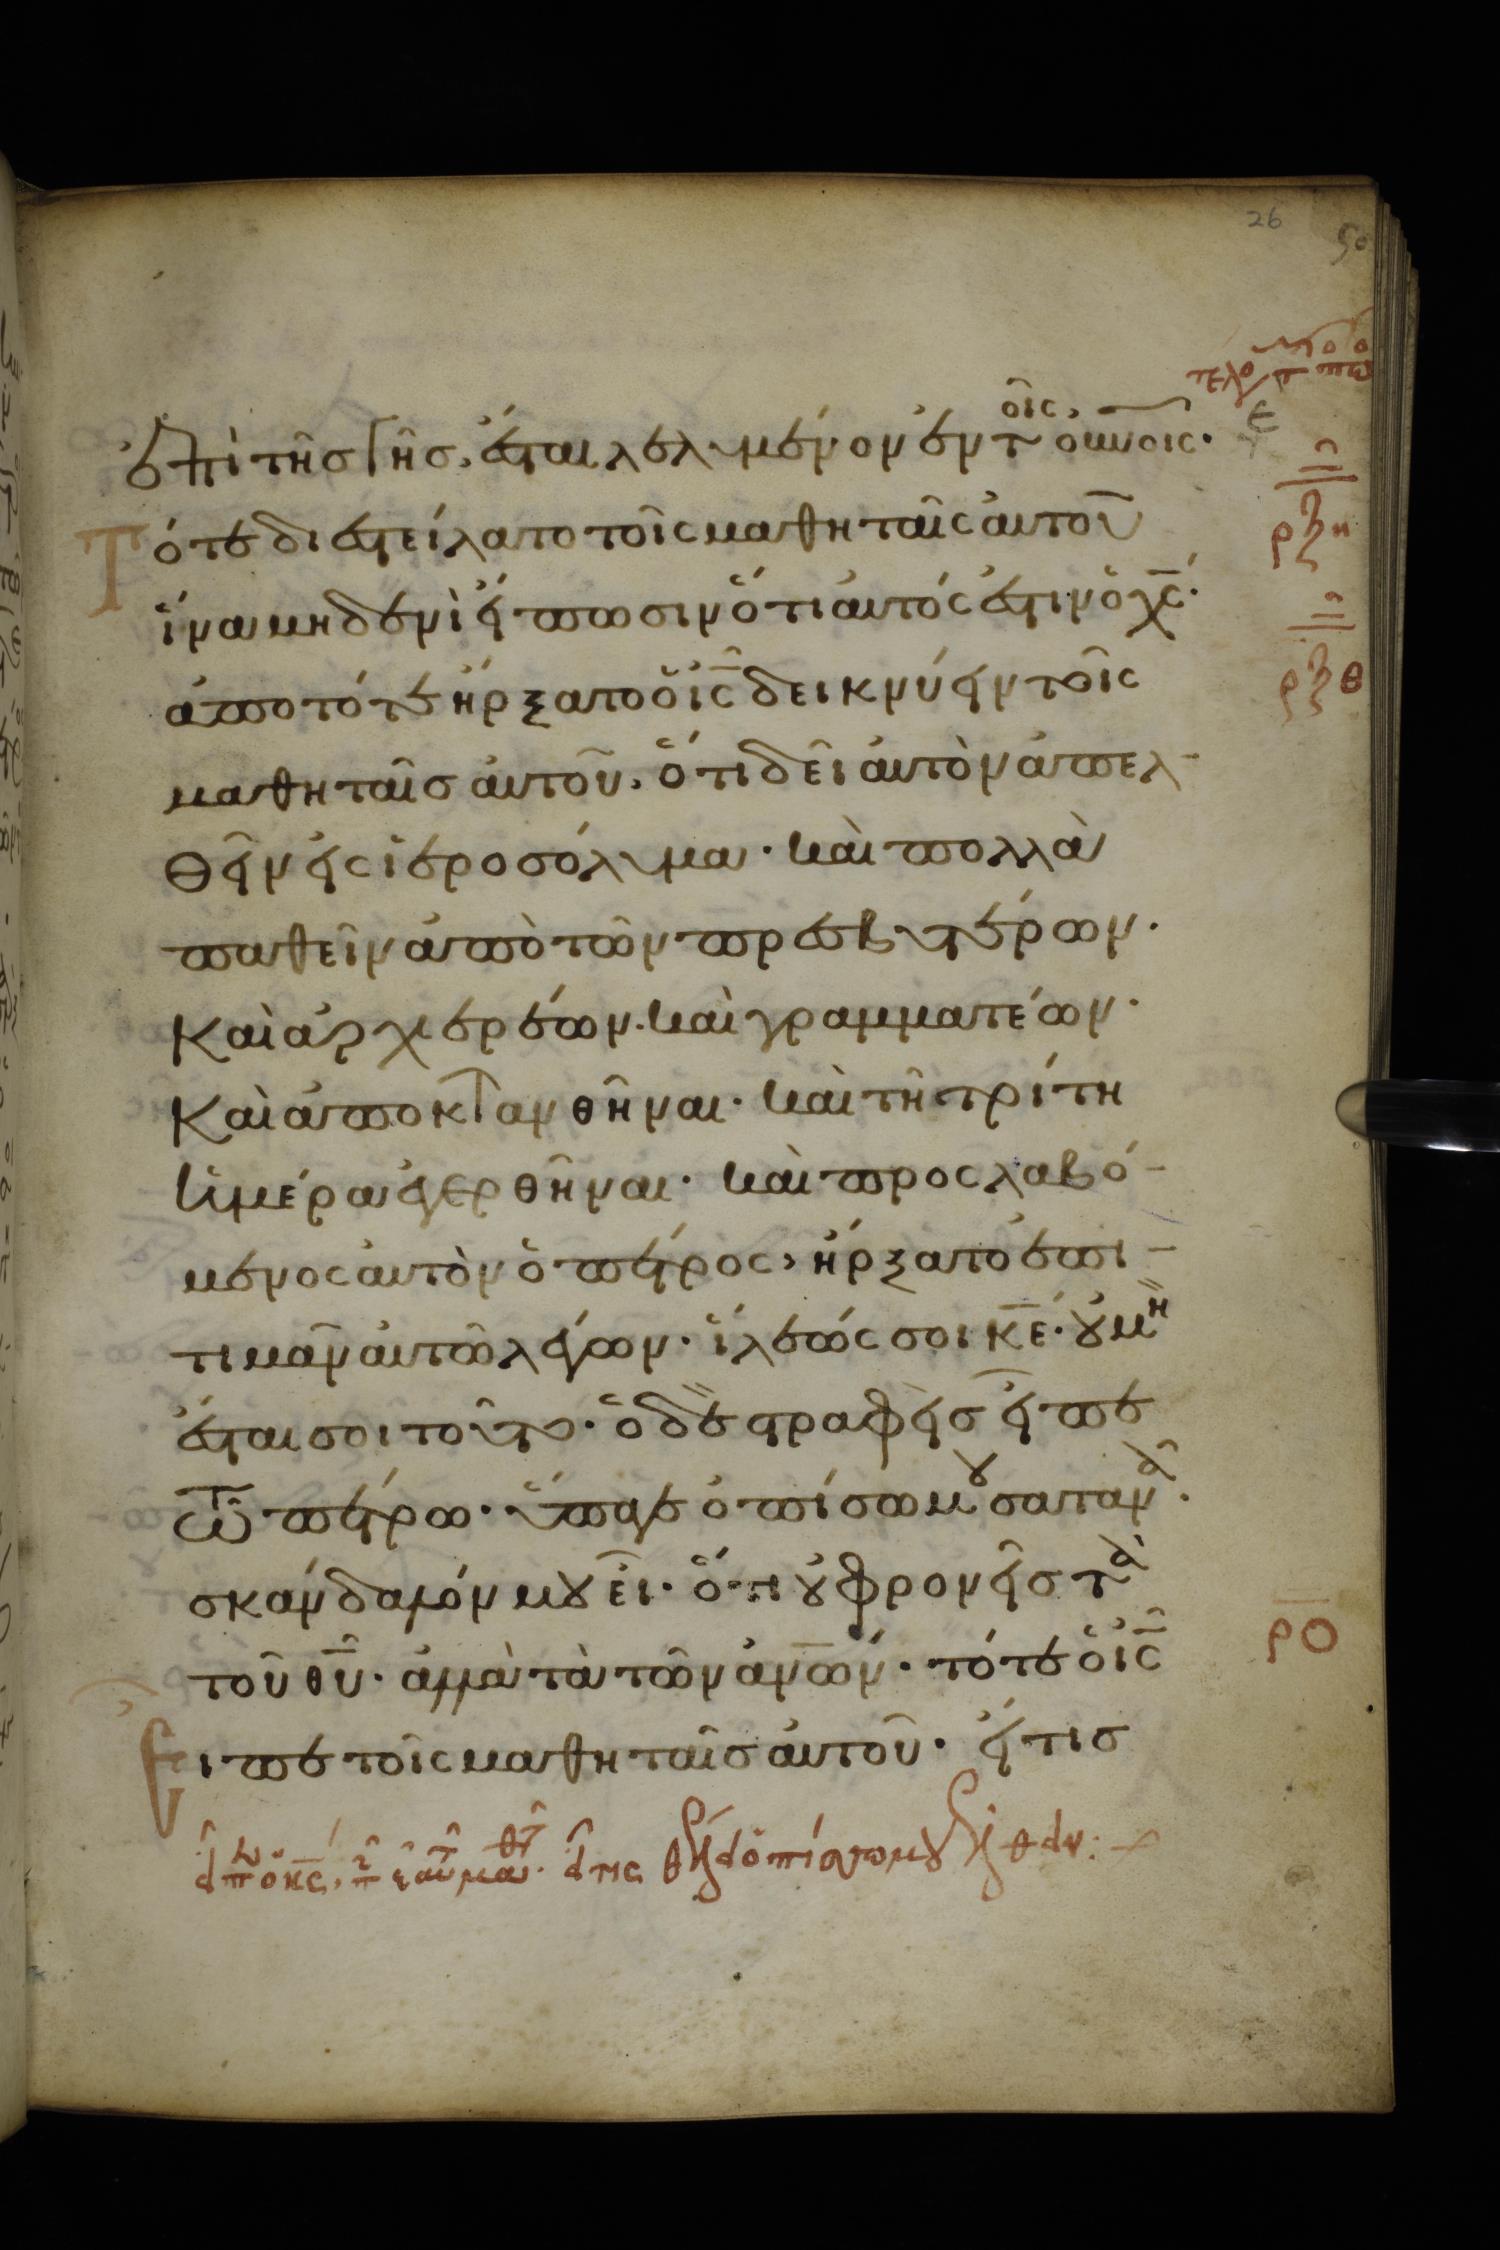 26
50
ἐπὶ τῆς γῆς, ἔσται λελυμένον ἐν τοῖς οὐνοις·
Τότε διεστείλατο τοῖς μαθηταῖς αὐτοῦ
ἵνα μηδενὶ εἴπωσιν ὅτι αὐτός ἐστιν ὁ χς·
ἀπο τότε ἤρξατο ὁ ις δεικνύειν τοῖς
μαθηταῖς αὐτοῦ, ὅτι δεῖ αὐτὸν ἀπελ-
θεῖν εἰς ἱεροσόλυμα· καὶ πολλὰ
παθεῖν ἀπὸ τῶν πρεσβυτέρων·
καὶ ἀρχιερέων· καὶ γραμματέων·
καὶ ἀποκτανθῆναι· καὶ τῆ τρίτη
ἡμέρα ἐγερθῆναι· καὶ προσλαβό-
μενος αὐτὸν ὁ πέτρος, ἤρξατο ἐπι-
τιμᾶν αὐτῶ λέγων· ἵλεώς σοι κε· οὐ μὴ
ἔσται σοι τοῦτο· ὁ δὲ στραφεὶς εἶπε
τῶ πέτρω· ὕπαγε ὀπίσω μου σατανᾶ·
σκάνδαλόν μου εἶ· ὅτι οὐ φρονεῖς τὰ
τοῦ θυ· ἀλλὰ τὰ τῶν ἀνων· τότε ὁ ις
Εἶπε τοῖς μαθηταῖς αὐτοῦ· εἴ τις
ρξη
ρξθ
ρο